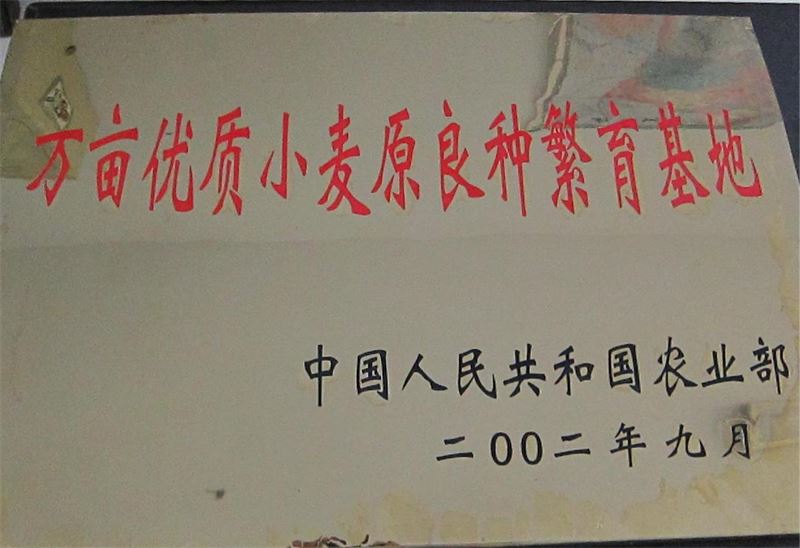 万亩优质小麦原良种繁育基地
中国人民共和国农业部
二00二年九月